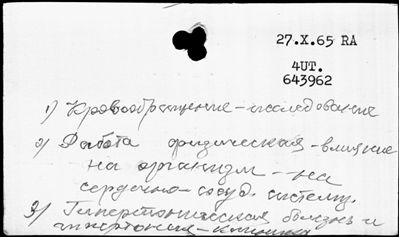 27.X.65 RA
4UT.
643962
1) Кровообращение - исследование
2) Работа физическая - влияние
на организм - на
сердечно-сосуд. систему.
3) Гипертоническая болезнь и
гипертония - клиника